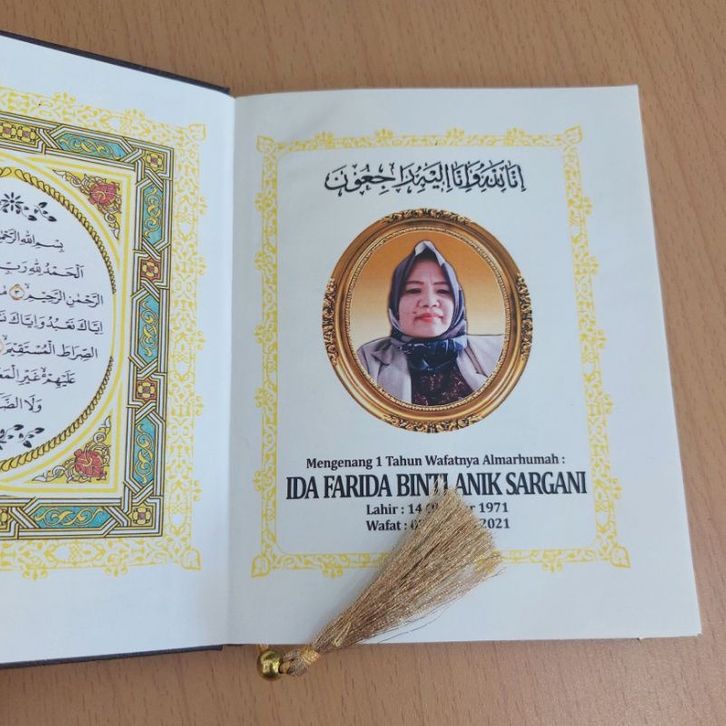 بِسْمِ اللّٰهِ الرَّحْمٰنِ
اَلْحَمْدُ لِلّٰهِ رَبِّ
الرَّحْمٰنِ الرَّحِيْمِ ۝٣
اِيَّاكَ نَعْبُدُ وَاِيَّاكَ
الصِّرَاطَ الْمُسْتَقِيْمَ
عَلَيْهِمْ غَيْرِ
وَلَا
إِنَّا لِلّٰهِ وَإِنَّا إِلَيْهِ رَاجِعُونَ
Mengenang 1 Tahun Wafatnya Almarhumah :
IDA FARIDA BINTI ANIK SARGANI
Lahir : 14 1971
Wafat : 2021